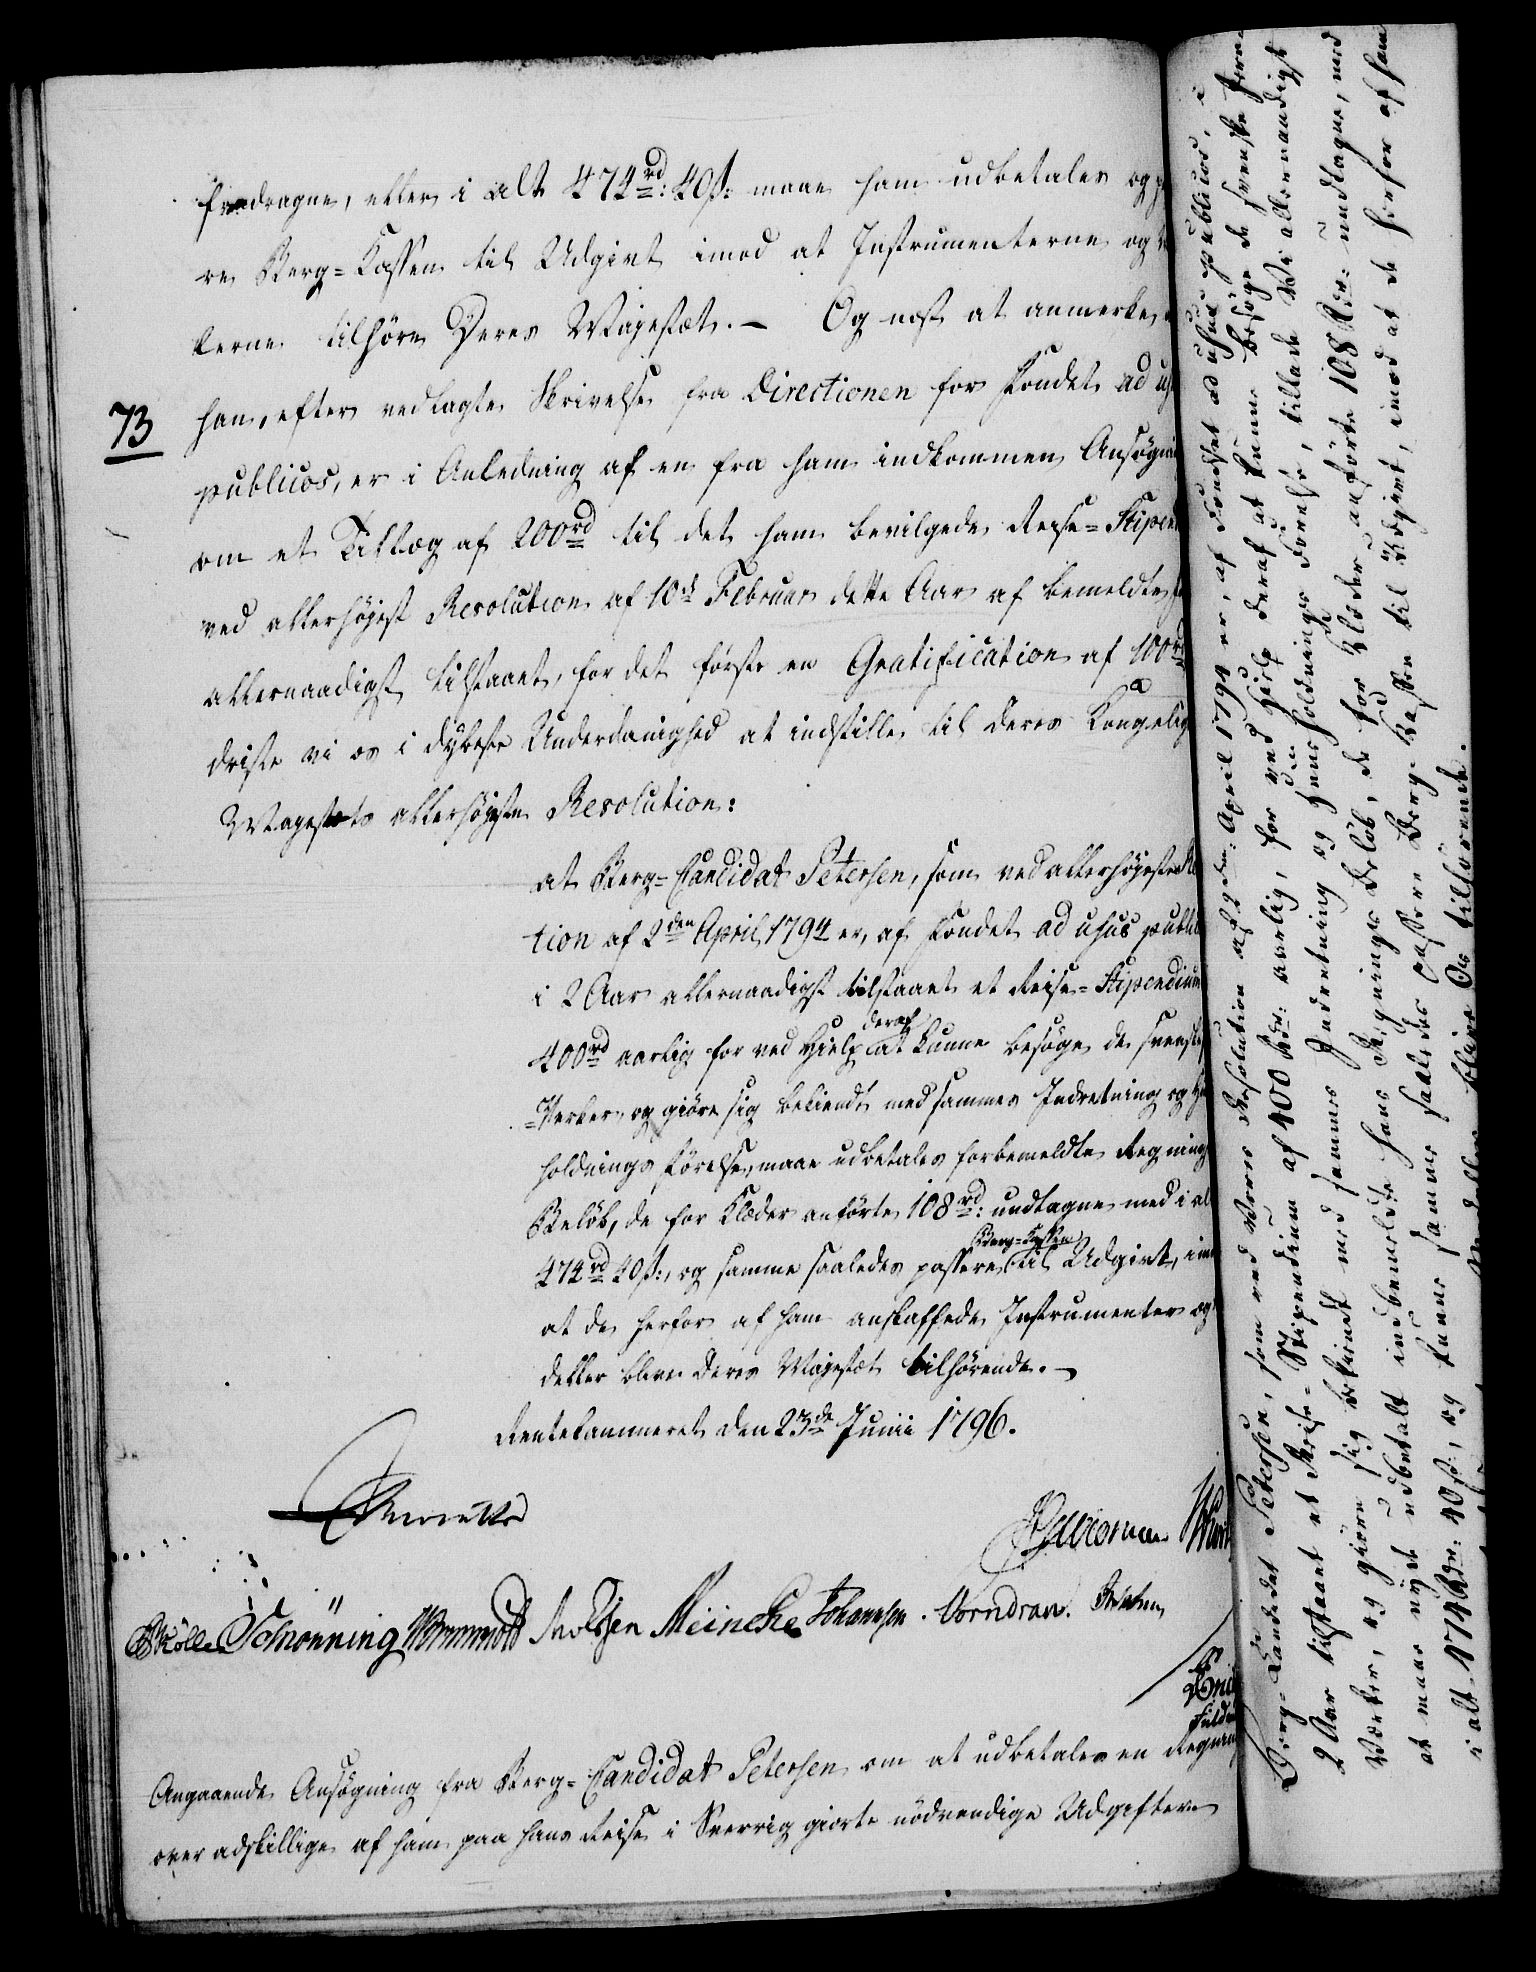 fradragne, eller i alt 474rd: 40s: maae ham udbetales og
re Berg-Kassen til Udgivt imod at Instrumenterne og
lerne tilhöre Deres Majestæt. — Og næst at anmerke,
han, efter vedlagte Skrivelse fra Directionen for Fondet ad us
73
publicos, er i Anledning af en fra ham indkommen Ansögni
om et Tillæg af 200rd til det ham bevilgede Reise-Stipen
ved allerhöyest Resolution af 10de Februar dette Aar af bemeldte
allernaadigst tilstaaet, for det förste en Gratification af 100rd
driste vi os i dybeste Underdanighed at indstille til Deres Kongelig
Majestæts allerhöyeste Resolution:
at Berg-Candidat Petersen, som ved allerhöyeste
tion af 2den April 1794 er, af Fondet ad usus publi
i 2 Aar allernaadigst tilstaaet et Reise-Stipendium
400rd aarlig for ved Hielp deraf at kunne besöge de svenske
Verker, og giöre sig bekiendt med sammes Indretning og
holdnings Förelse, maae udbetales forbemeldte Regnings
Belöb, de for Klæder anförte 108rd: undtagne med i al
474rd 40s:, og samme saaledes passere Berg-Kassen til Udgivt, im
at de herfor af ham anskaffede Instrumenter og
deller blive Deres Majestæt tilhörende. —
Rentekammeret den 23de Junii 1796.
Schönning Wormskiold Meincke Johannsen. Vorndran.
Angaaende Ansögning fra Berg-Candidat Petersen om at udbetales en Regning
over adskillige af ham paa hans Reise i Sverrig giorte nödvendige Udgifter
Berg-Candidat Petersen, som ved Vores Resolution af 2den April 1794 er, af Fondet ad usus publicos, i
2 Aar tilstaaet et Reise-Stipendium af 400 Rdr: aarlig, for ved Hielp deraf at kunne besöge de svenske
Værker, og giöre sig bekiendt med sammes Indretning og Huusholdnings Förelse, tillade Vi allernaadigst
at maae nyde udbetalt indbemeldte hans Regnings Belöb, de for Klæder anförte 108 Rdr: undtagne, med
i alt 474 Rdr: 40 s:, og kan samme saaledes passere Berg-Kassen til Udgivt, imod at de herfor af ham